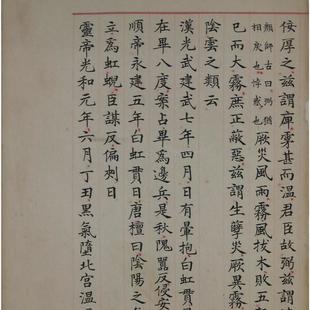 佞厚之茲謂庳雾甚而溫君臣故弼茲謂
顏師古曰弼猶
相戾也悖惑也
厥災風雨霧風拔木敗五
已而大霧庶正蔽惡茲謂生孽災厥異霧
陰雲之類云
漢光武建武七年四月日有暈抱白虹貫
在畢八度案占畢為邊兵是秋隗囂反侵安
順帝永建五年白虹貫日唐檀曰陰陽之
立為虹蜺臣謀反偏刺日
靈帝光和元年六月丁丑黑氣墮北宮溫